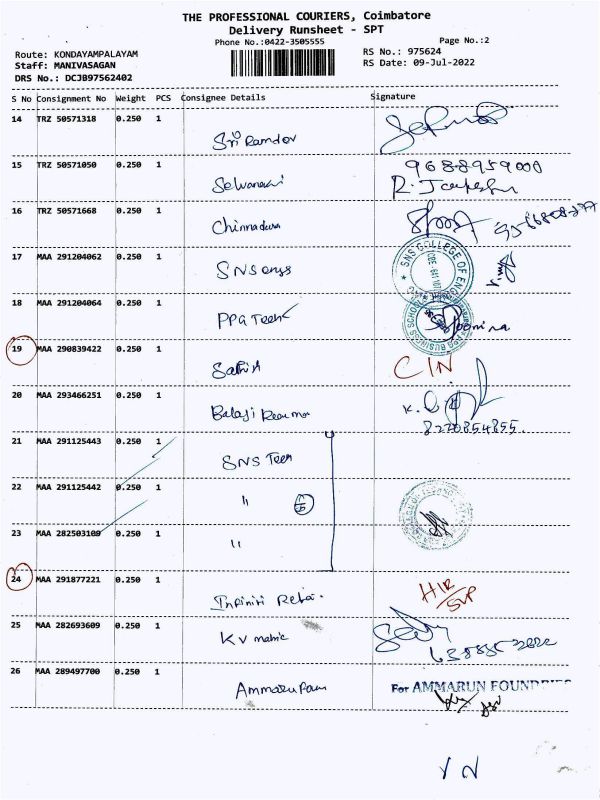 THE PROFESSIONAL COURIERS, Coimbatore
Delivery Runsheet - SPT
Phone No.:0422-3505555
Page No.:2
Route: KONDAYAMPALAYAM
Staff: MANIVASAGAN
DRS No.: DCJB97562402
RS No.: 975624
RS Date: 09-Jul-2022
S No Consignment No Weight PCS Consignee Details Signature
14 TRZ 50571318 0.250 1
Sri Ramdev
15 TRZ 50571050 0.250 1
9688959000
16 TRZ 50571668 0.250 1
Chinnadurai
17 MAA 291204062 0.250 1
SNS engg
SNS COLLEGE OF
18 MAA 291204064 0.250 1
PPG Teeh
BUSINESS SCHOOL
19 MAA 290839422 0.250 1
Sathish
CIN
20 MAA 293466251 0.250 1
Balaji
8220854855
21 MAA 291125443 0.250 1
SNS Teeh
22 MAA 291125442 0.250 1
"
23 MAA 282503109 0.250 1
"
24 MAA 291877221 0.250 1
Infiniti
25 MAA 282693609 0.250 1
KV matric
26 MAA 289497700 0.250 1
For AMMARUN